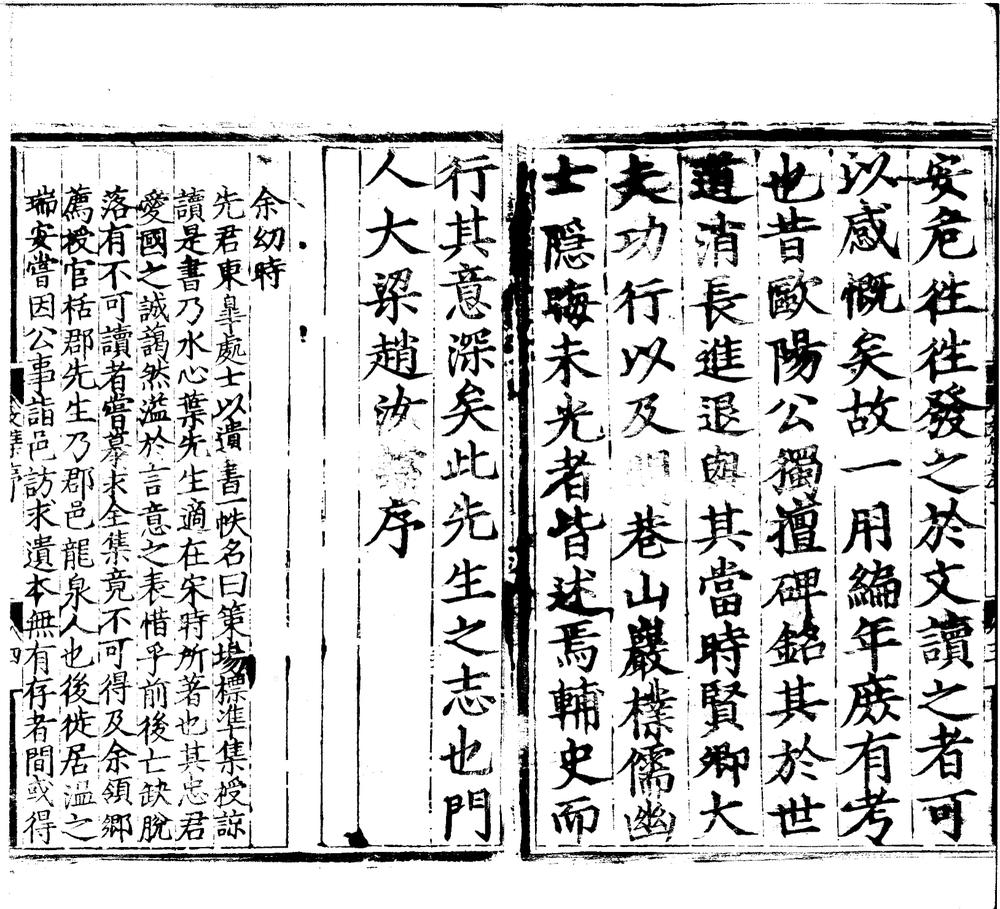 安危徃徃發之於文讀之者可
以感慨矣故一用編年庶有考
也昔歐陽公獨擅碑銘其於世
道消長進退與其當時賢卿大
夫功行以及閭巷山巖樸儒幽
士隱晦未光者皆述焉輔史而
行其意深矣此先生之志也門
人大梁趙汝序
余幼時
先君東臯處士以遺書一帙名曰策塲標準集授諒
讀是書乃水心葉先生適在宋時所著也其忠君
愛國之誠藹然溢於言意之表惜乎前後亡缺脫
落有不可讀者嘗慕求全集竟不可得及余領鄉
薦授官栝郡先生乃郡邑龍泉人也後徙居溫之
瑞安嘗因公事詣邑訪求遺本無有存者間或得
文集序
四